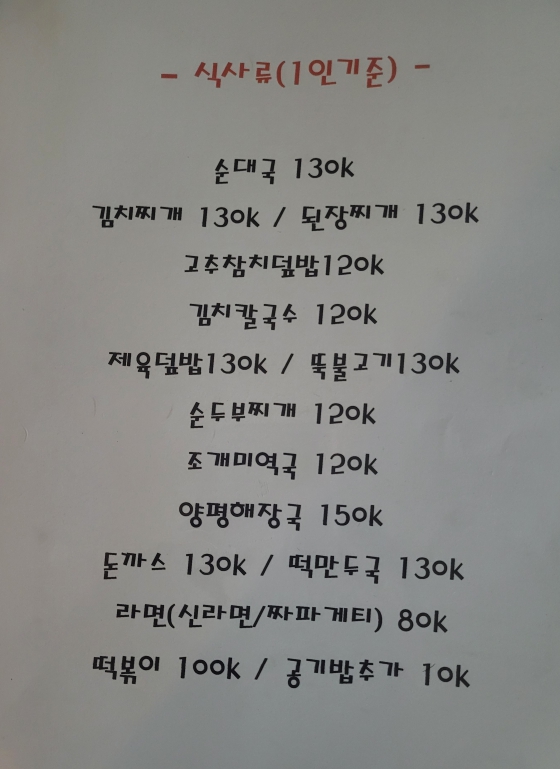 - 식사류(1인기준) -
순대국 130k
김치찌개 130k / 된장찌개 130k
고추참치덮밥120k
김치칼국수 120k
제육덮밥130k / 뚝불고기130k
순두부찌개 120k
조개미역국 120k
양평해장국 150k
돈까스 130k / 떡만두국 130k
라면(신라면/짜파게티) 80k
떡볶이 100k / 공기밥추가 10k